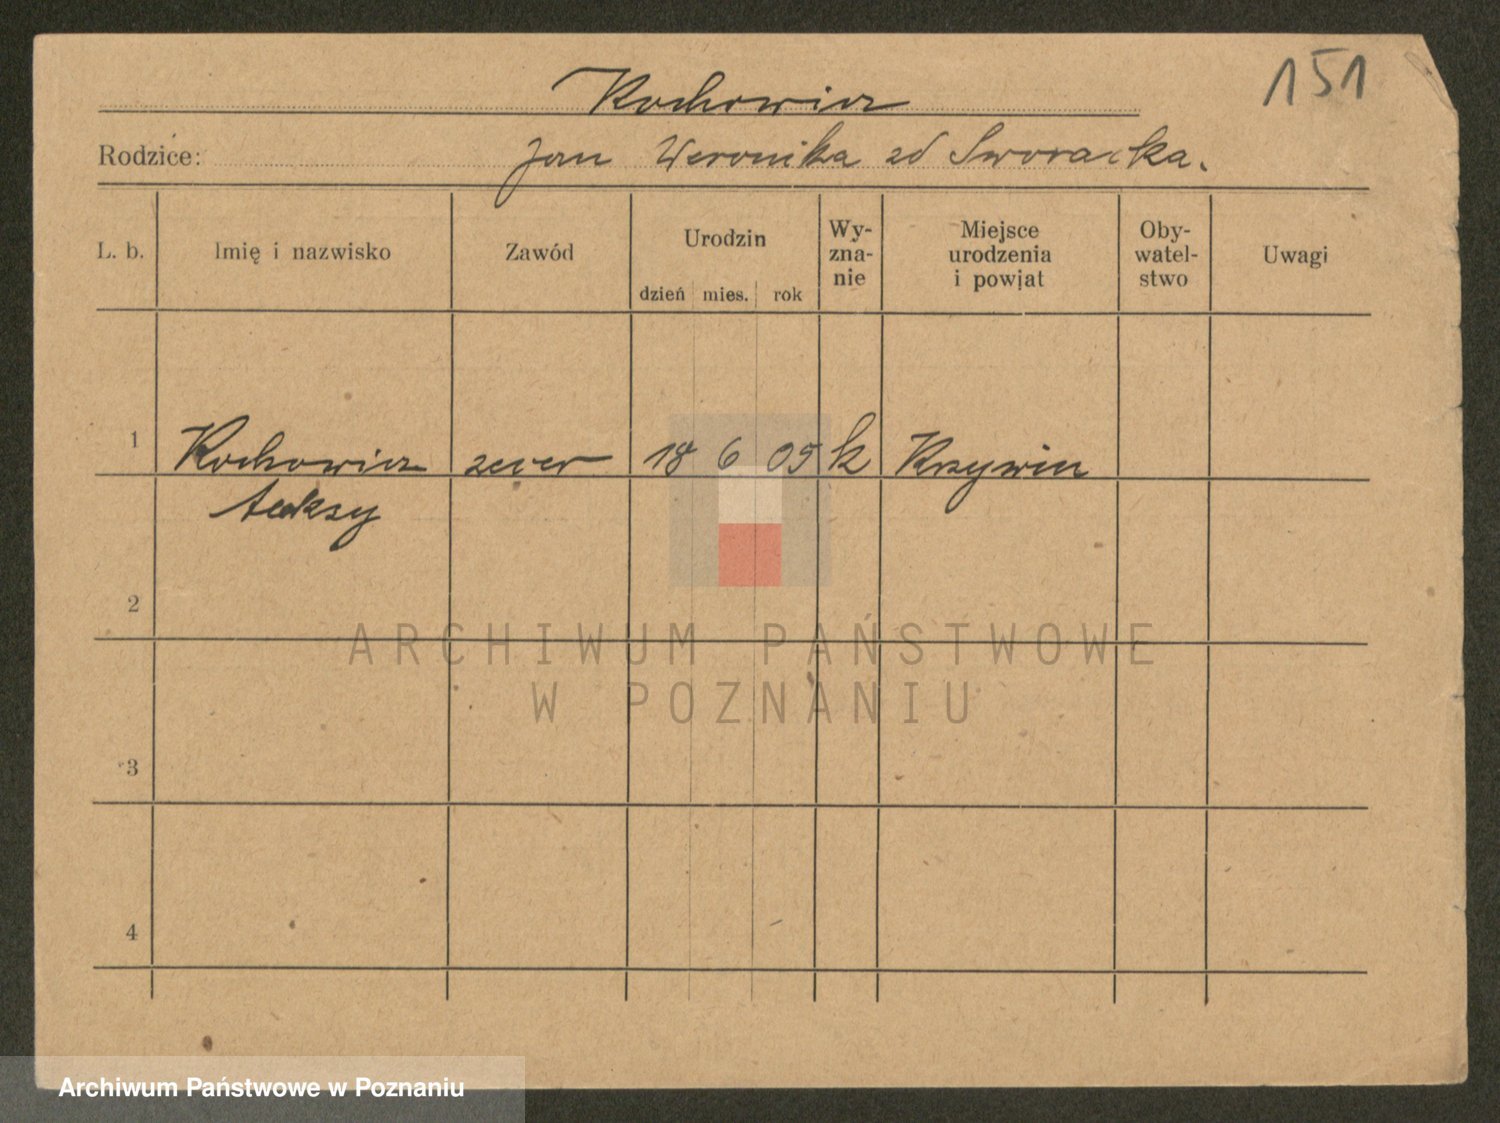 151
Kochowicz
Rodzice: Jan Weronika zd Sworacka.
L. b. Imię i nazwisko Zawód Urodzin dzień mies. rok Wy-zna-nie Miejsce urodzenia i powiat Oby-watel-stwo Uwagi
1 Kochowicz zecer 18 6 05 k Krzywin
Aleksy
2
ARCHIWUM PAŃSTWOWE
W POZNANIU
3
4
Archiwum Państwowe w Poznaniu